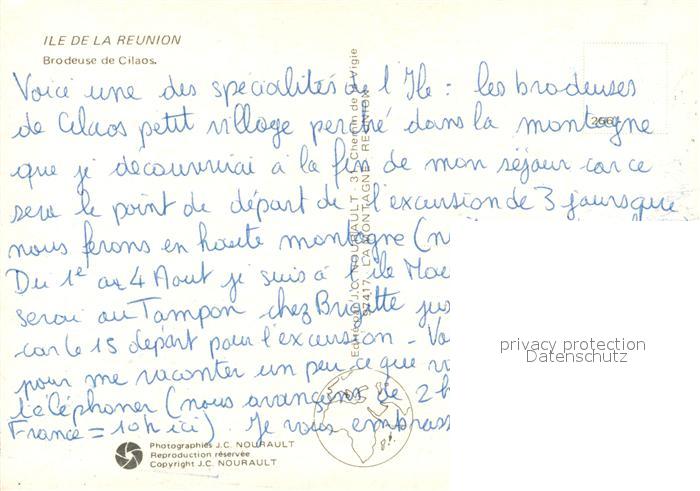 ILE DE LA REUNION
Brodeuse de Cilaos.
Voici une des spécialités de l'Ile : les brodeuses
de Cilaos petit village perché dans la montagne
que je découvrirai à la fin de mon séjour car ce
sera le point de départ de l'excursion de 3 jours que
nous ferons en haute montagne (n
Du 1e au 4 Aout je suis à l'ile Mau
serai au Tampon chez Brigitte jus
car le 15 départ pour l'excursion - Vo
pour me raconter un peu ce que v
téléphoner (nous avançons de 2 h
France = 10h ici). Je vous embrass
Edité par J.C. NOURAULT 3 Chemin de la Vigie
97417 LA MONTAGNE REUNION
privacy protection
Datenschutz
Photographies J.C. NOURAULT
Reproduction réservée
Copyright J.C. NOURAULT